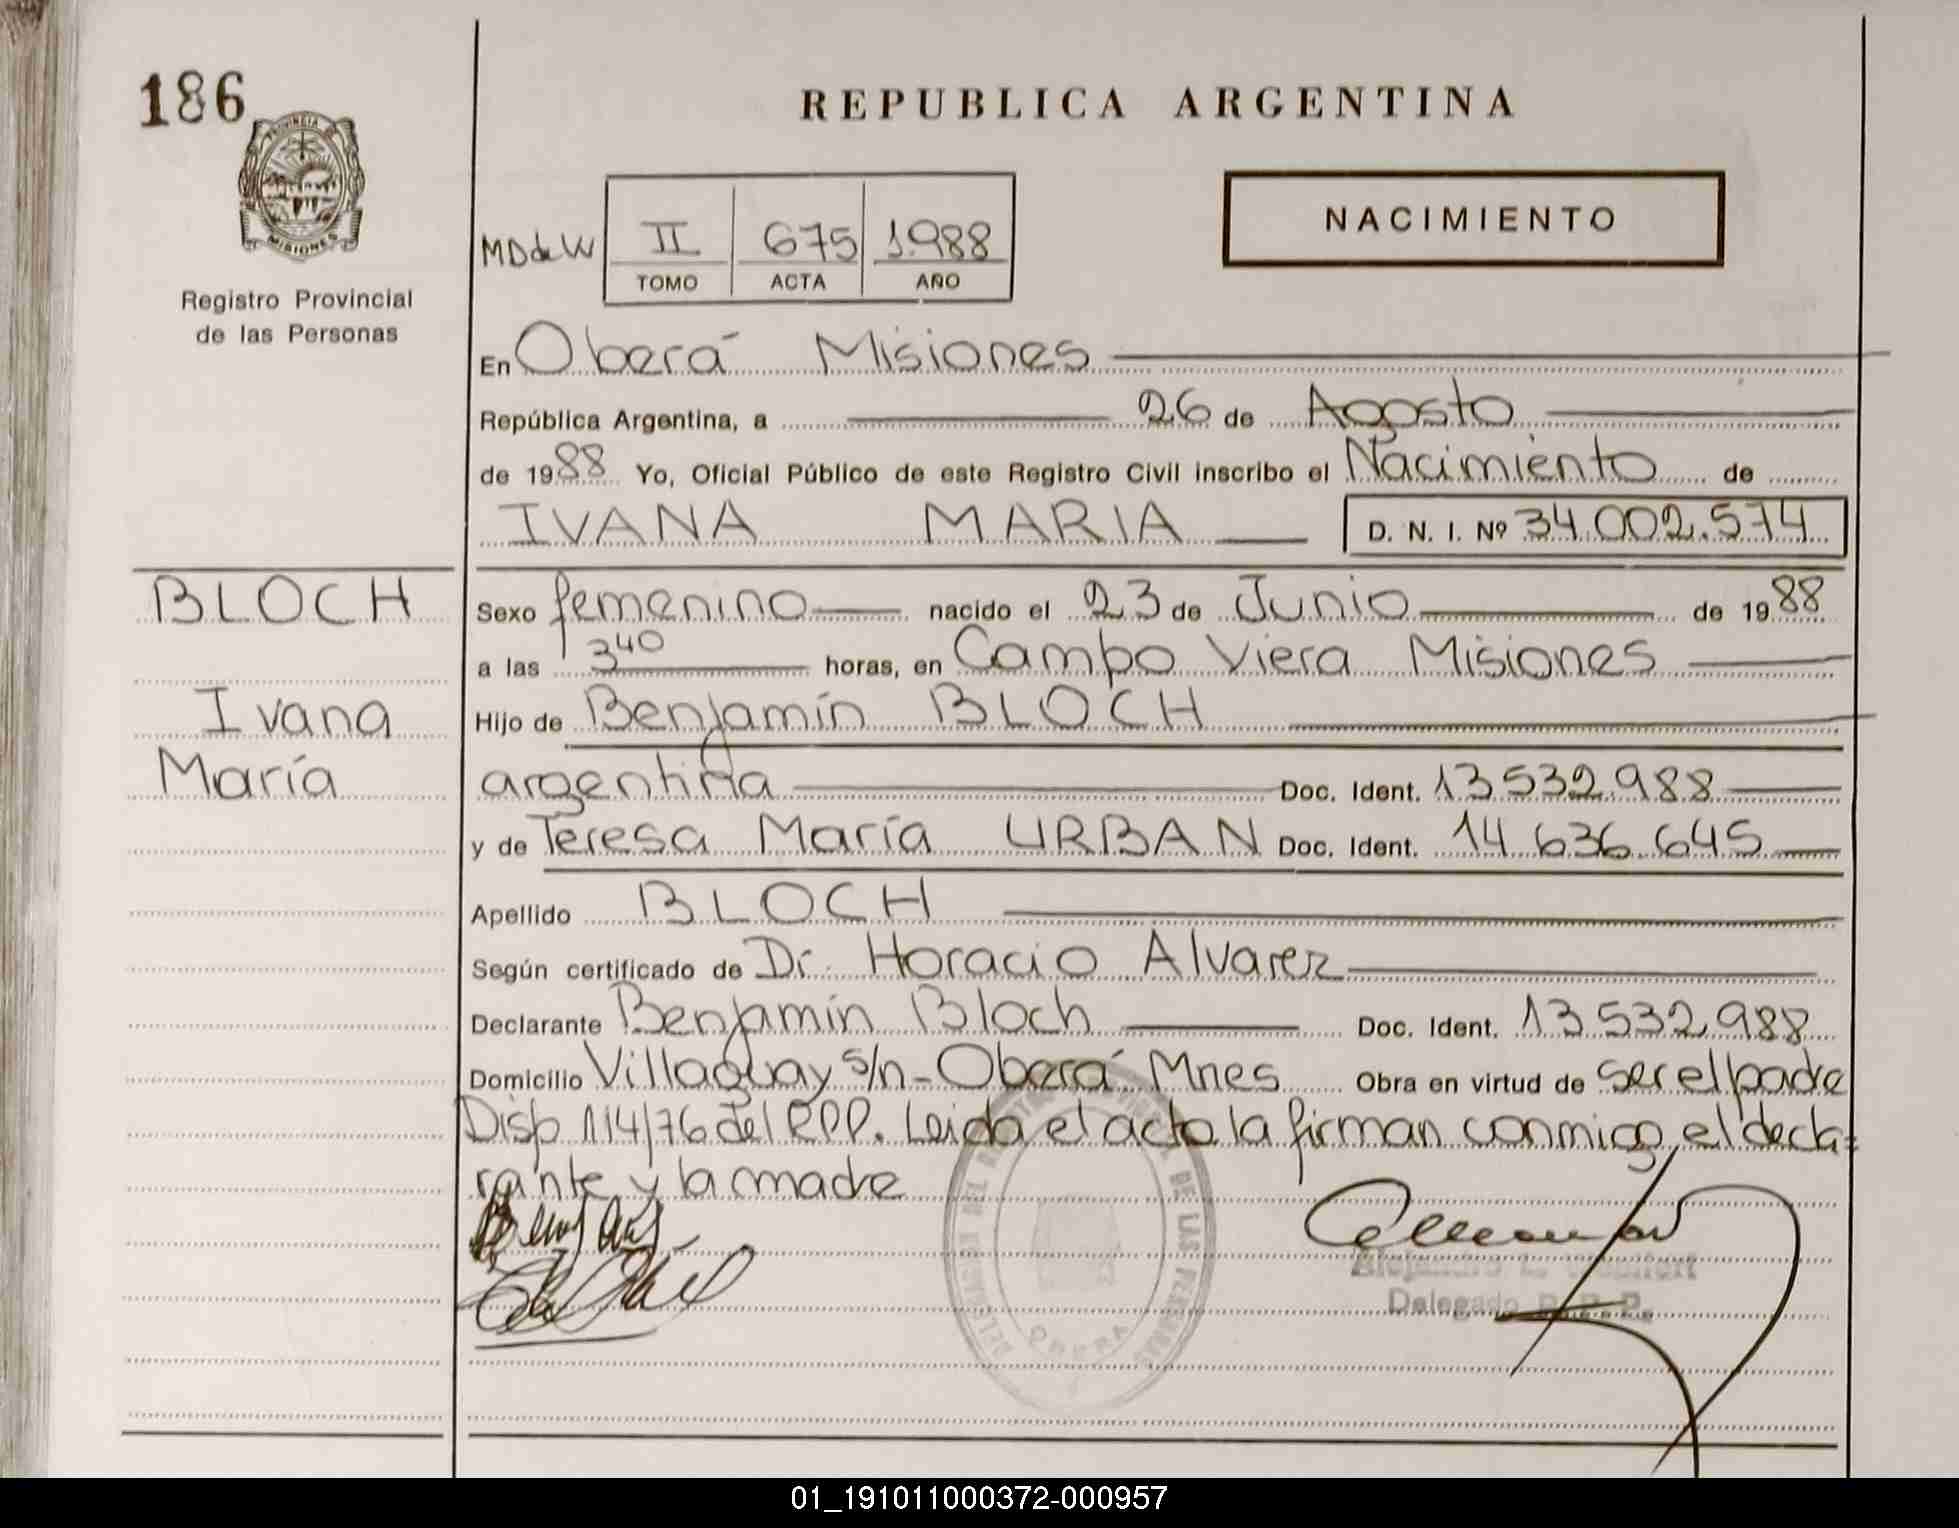 186
PROVINCIA DE
MISIONES
Registro Provincial
de las Personas
REPUBLICA ARGENTINA
NACIMIENTO
MD de W
II 675 1.988
TOMO ACTA AÑO
En Oberá Misiones
República Argentina, a 26 de Agosto
de 1988 Yo, Oficial Público de este Registro Civil inscribo el Nacimiento de
IVANA MARIA D. N. I. Nº 34.002.574
BLOCH
Ivana
María
Sexo femenino nacido el 23 de Junio de 1988
a las 3 40 horas, en Campo Viera Misiones
Hijo de Benjamín BLOCH
argentina Doc. Ident. 13.532.988
y de Teresa María URBAN Doc. Ident. 14.636.645
Apellido BLOCH
Según certificado de Dr. Horacio Alvarez
Declarante Benjamín Bloch Doc. Ident. 13.532.988
Domicilio Villaguay s/n - Oberá Mnes Obra en virtud de ser el padre
Disp 114/76 del RPP. Leida el acta la firman conmigo el decla=
rante y la madre
DE LAS PERSONAS
OBERA
Delegado R. P. P.
01_191011000372-000957